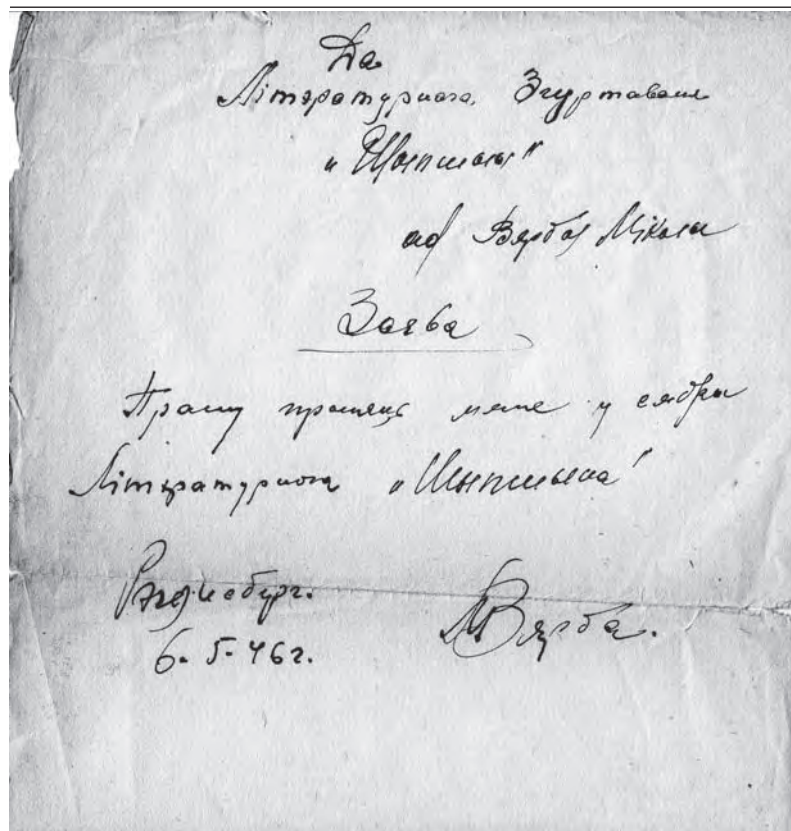 Да
Літэратурнага Згуртаваньня
„Шыпшына"
ад Вярбы Міколы
Заява
Прашу прыняць мяне у сябры
Літэратурнага „Шыпшына"
Рэгенсбург.
6-5-46 г.
МВярба.